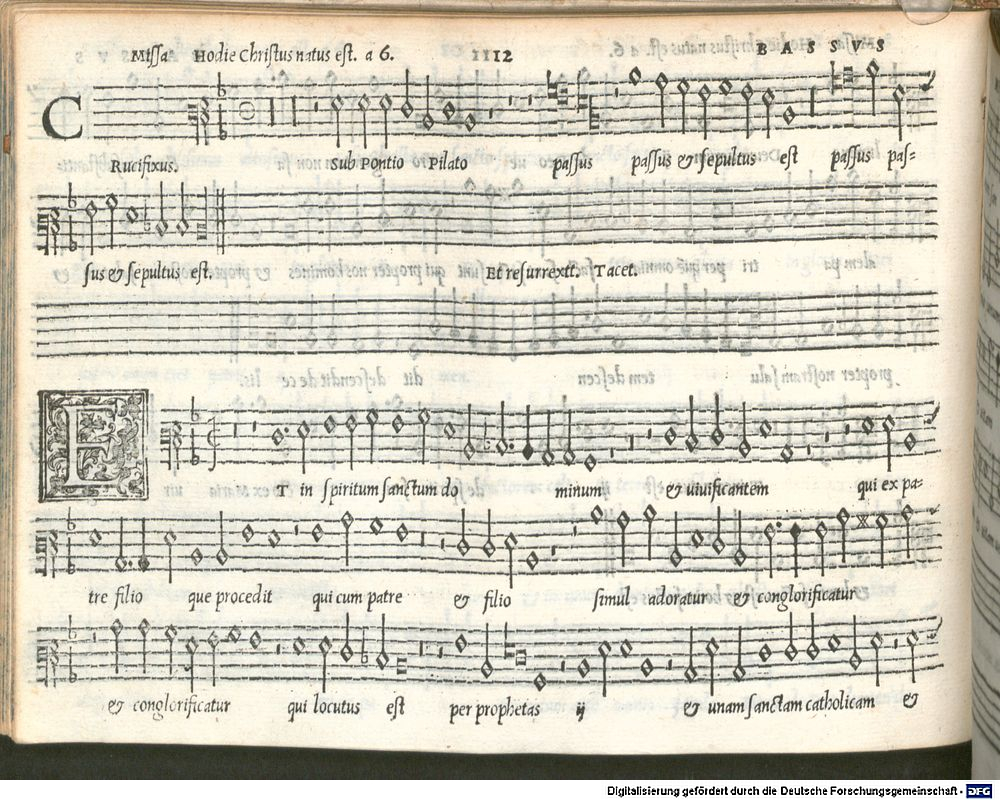 Missa Hodie Christus natus est. a 6. 1112 B A S S V S
C Rucifixus. sub Pontio Pilato passus passus & sepultus est passus pas=
sus & sepultus est. Et resurrextt. Tacet.
E T in spiritum sanctum do minum ij & uiuificantem qui ex pa-
tre filio que procedit qui cum patre & filio simul adoratur & conglorificatur
& conglorificatur qui locutus est per prophetas ij & unam sanctam catholicam &
Digitalisierung gefördert durch die Deutsche Forschungsgemeinschaft - DFG